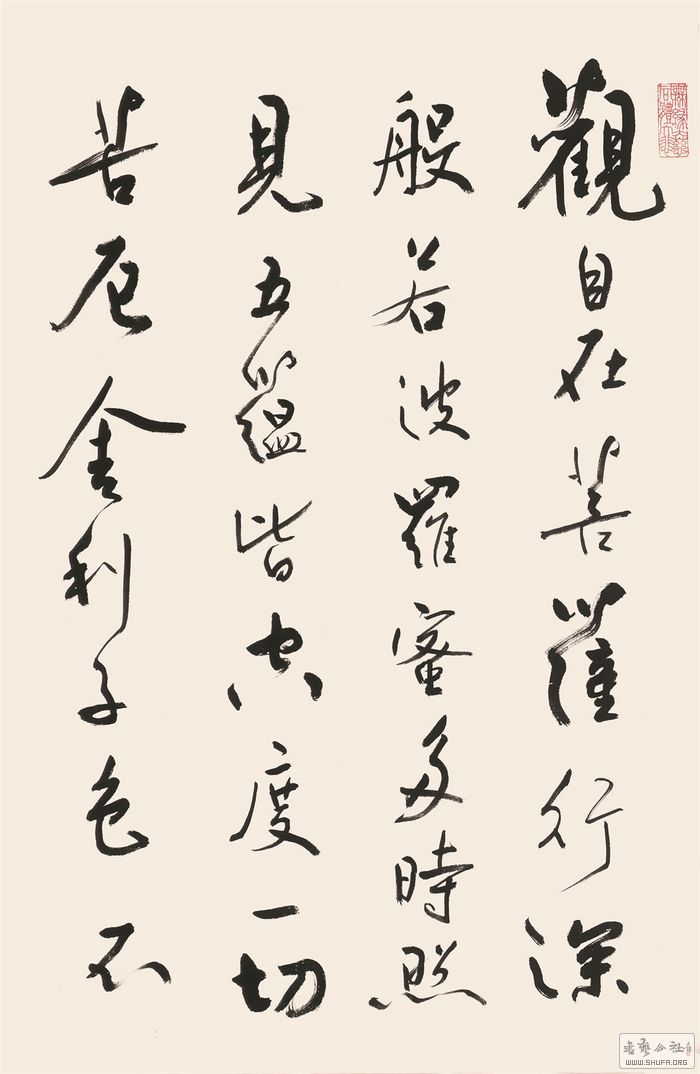 觀自在菩薩行深
般若波羅蜜多時照
見五蘊皆空度一切
苦厄舍利子色不
書藝公社
WWW.SHUFA.ORG